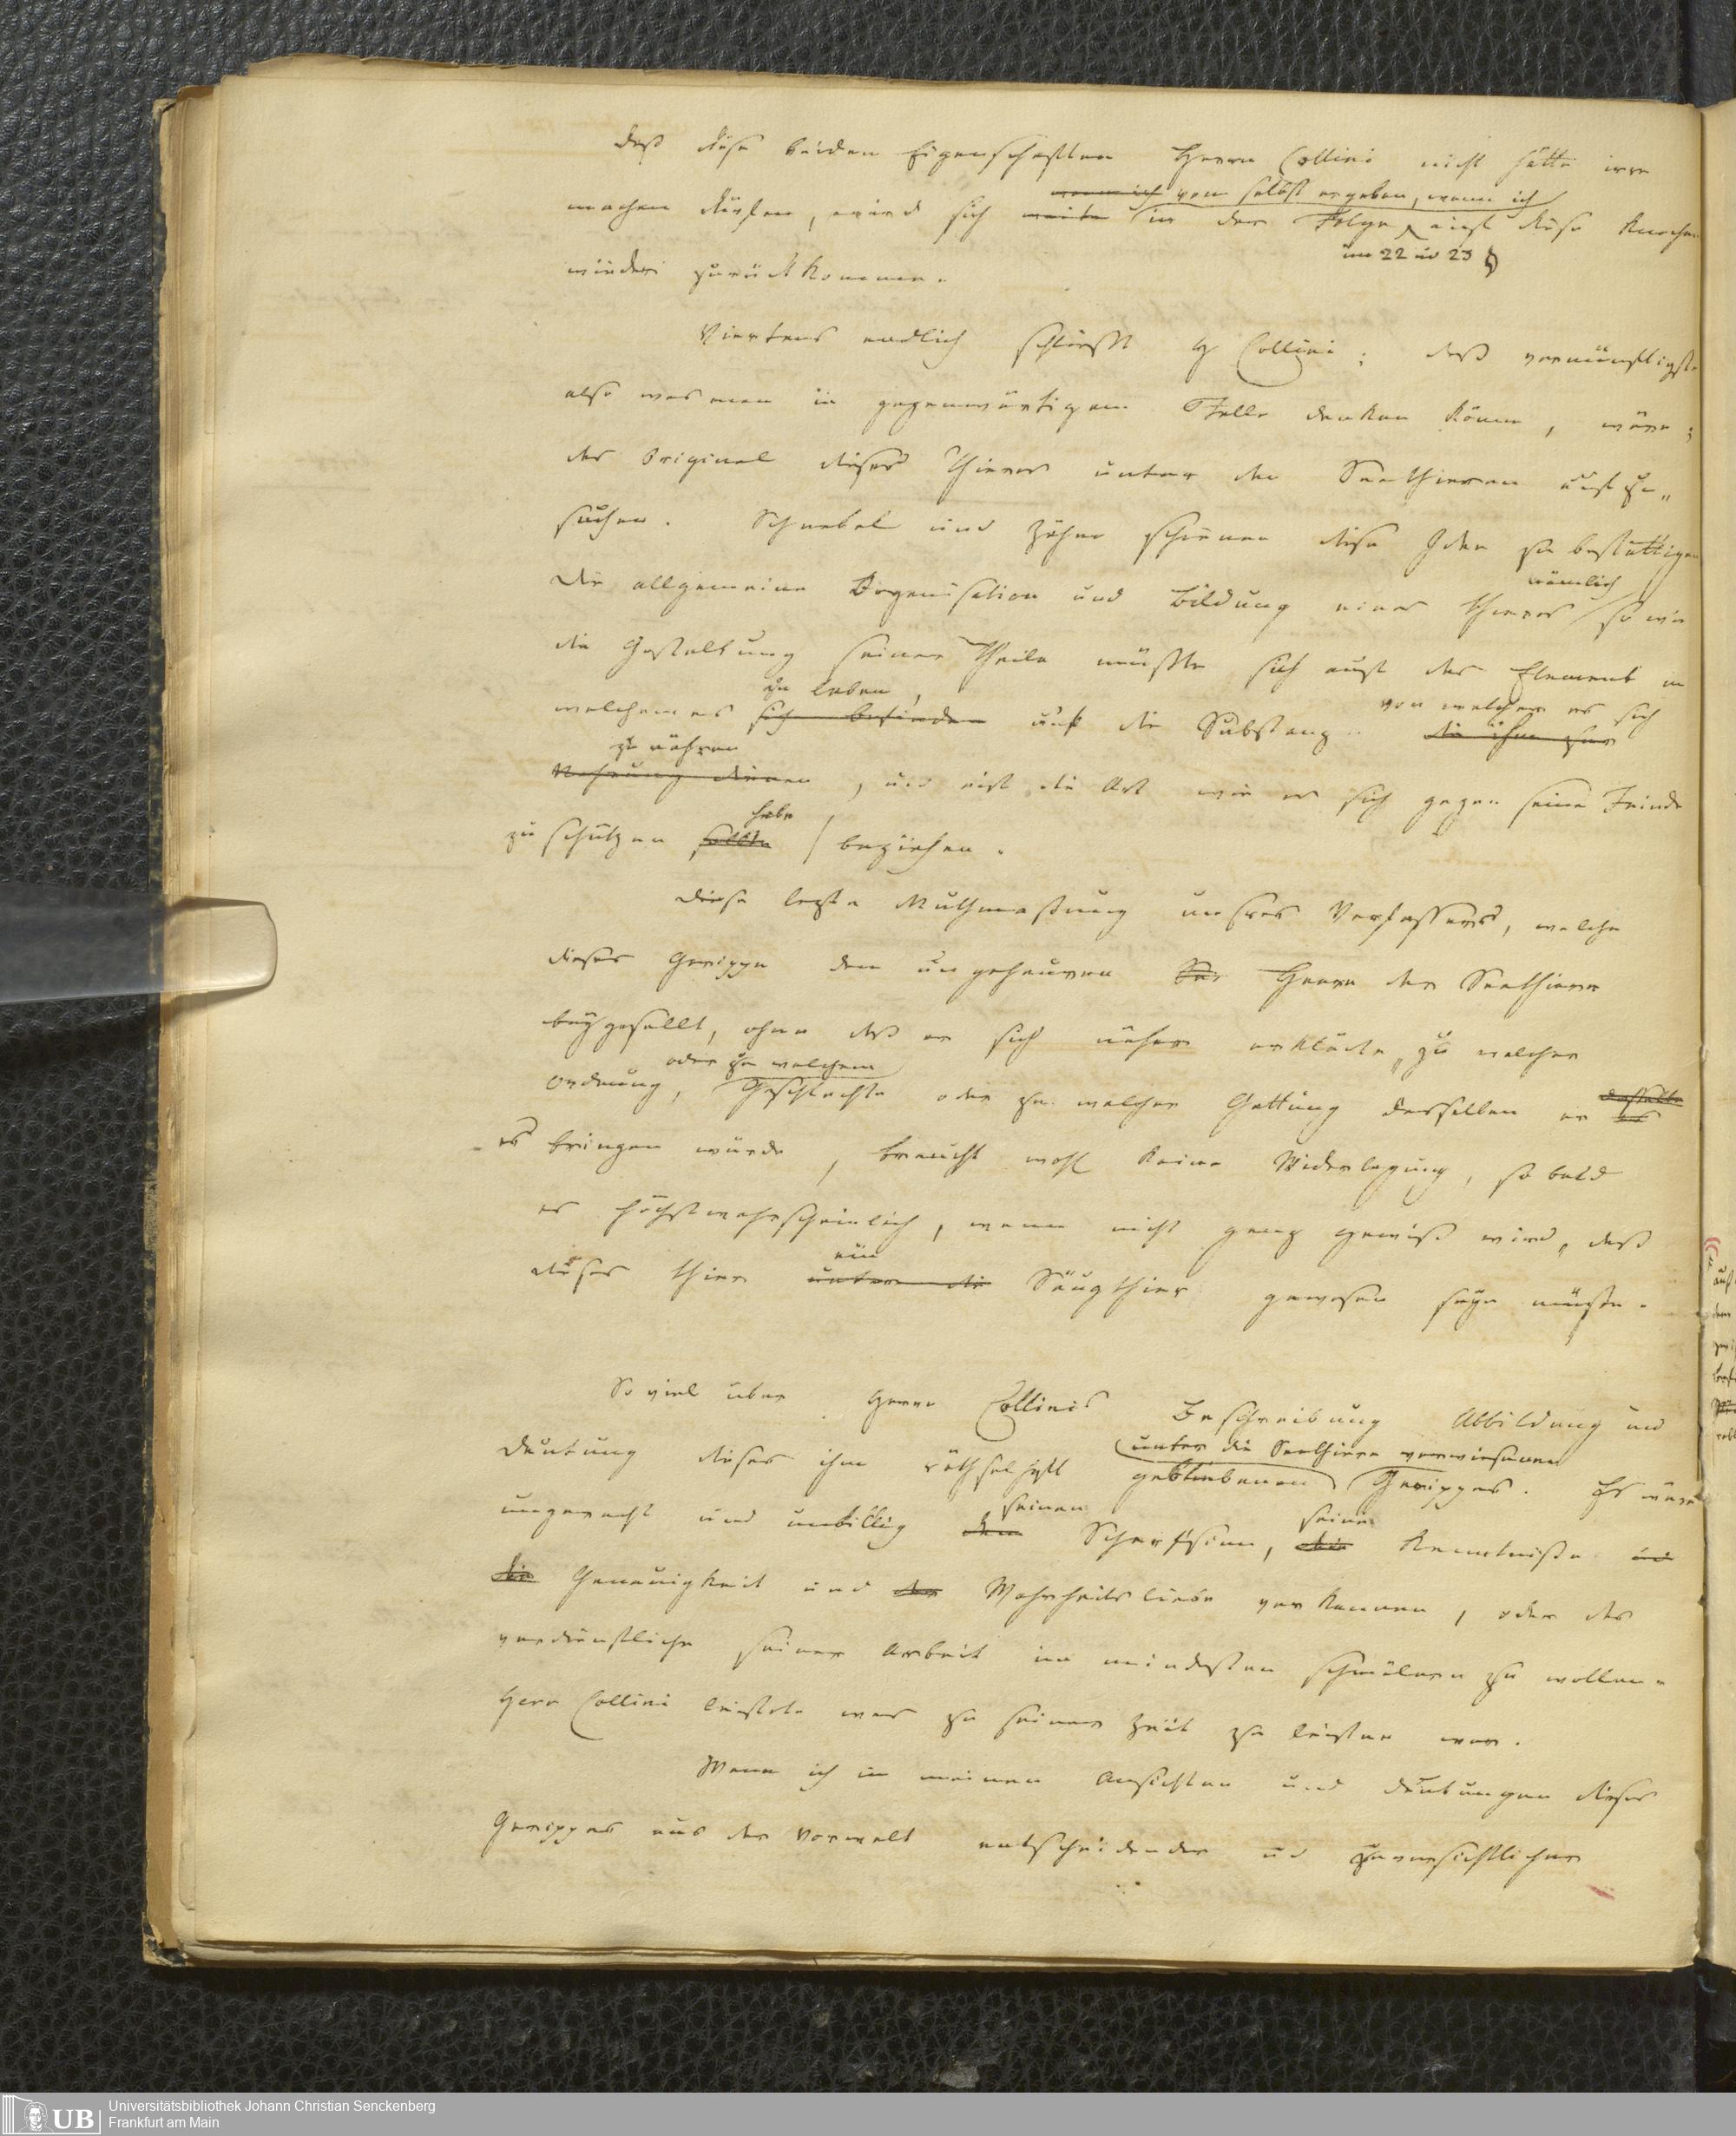 daß diese beiden Eigenschafften Herrn Collini nicht hätte irre
wenn ich von selbst ergeben, wenn ich
machen dürfen, wird sich weite in der Folge auf diese Knochen
im 22 und 23
wieder zurückkomme.
Viertens endlich schließt H Collini; daß vernünftigste
also was man in gegenwärtigem Falle denken könne, wäre;
das Original dieses Thieres unter den Seethieren aufzu„
suchen. Schnabel und Zähne schienen diese Idee zu bestättigen
nämlich
Die allgemeine Organisation und Bildung eines Thieres so wie
die Gestaltung seiner Theile müsste sich auf das Element in
zu leben, von welcher es sich
welchem es sich befinden auf die Substanz die ihm zur
zu nähren
Nahrung dienen, und auf die Art wie es sich gegen seine Feinde
habe
zu schützen sollte beziehen.
Diese lezte Muthmaßung unsres Verfassers, welche
dieses Gerippe dem ungeheuren See Heere der Seethiere
beygesellt, ohne daß er sich näher erklärte, zu welcher
oder zu welchem
Ordnung, Geschlechte oder zu welcher Gattung derselben er es
dasselbe
es bringen würde, braucht wohl keine Widerlegung, so bald
es höchstwahrscheinlich, wenn nicht ganz gewiß wird, daß
ein
dieses Thier unter die Säugthier gewesen seyn müsste.
So viel über Herrn Collinis Beschreibung Abbildung und
unter die Seethiere verwiesenen
Deutung dieses ihm räthselhaft gebliebenen Gerippes. Es wäre
seinen seine
ungerecht und unbillig den Scharfsinn, die Kenntniße und
die Genauigkeit und die Wahrheitsliebe verkennen, oder das
verdienstliche seiner Arbeit im mindesten schmälern zu wollen.
Herr Collini leistete was zu seiner Zeit zu leisten war.
Wenn ich in meinen Ansichten und Deutungen dieses
Gerippes aus der Vorwelt entscheidender und zuversichtlicher
UB Universitätsbibliothek Johann Christian Senckenberg
Frankfurt am Main